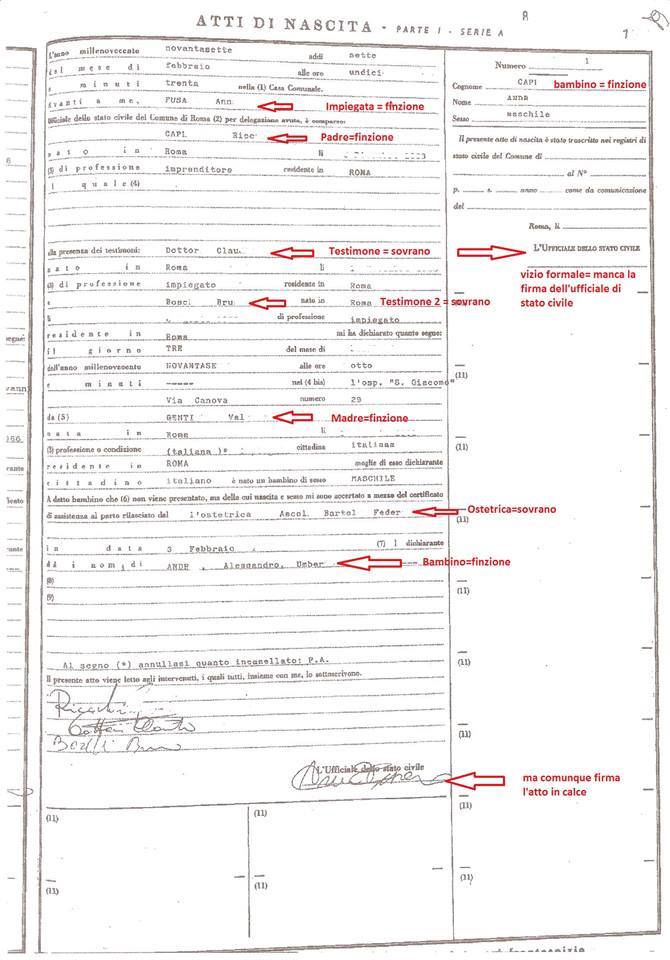 ATTI DI NASCITA - PARTE I - SERIE A
8
1
L'anno millenovecento novantasette addì sette
del mese di febbraio alle ore undici
e minuti trenta nella (1) Casa Comunale.
Avanti a me, FUSA Ann
Impiegata = ffnzione
Ufficiale dello stato civile del Comune di Roma (2) per delegazione avuta, è comparso:
CAPI Ricc
Padre=finzione
nato in Roma li
(3) di professione imprenditore residente in ROMA
il quale (4)
alla presenza dei testimoni: Dottor Clau
Testimone = sovrano
nato in Roma li
(3) di professione impiegato residente in Roma
e Bosci Bru nato in Roma
Testimone 2 = sovrano
di professione impiegato
residente in Roma mi ha dichiarato quanto segue:
il giorno TRE del mese di
dell'anno millenovecento NOVANTASE alle ore otto
e minuti ----- nel (4 bis) l'osp. "S. Giacomo"
Via Canova numero 29
da (5) GENTI Val
Madre=finzione
nata in Roma
(3) professione o condizione (italiana)* cittadina italiana
residente in ROMA moglie di esso dichiarante
cittadino italiano è nato un bambino di sesso MASCHILE
A detto bambino che (6) non viene presentato, ma della cui nascita e sesso mi sono accertato a mezzo del certificato
di assistenza al parto rilasciato dal l'ostetrica Ascol. Bartol Feder
Ostetrica=sovrano
in data 3 Febbraio (7) I dichiarante
dà i nomi di ANDR , Alessandro, Umber ---
Bambino=finzione
(8)
(9)
Al segno (*) annullasi quanto incasellato: P.A.
Il presente atto viene letto agli intervenuti, i quali tutti, insieme con me, lo sottoscrivono.
L'Ufficiale dello stato civile
ma comunque firma
l'atto in calce
(11)
(11)
(11)
(11)
Numero 1
Cognome CAPI
bambino = finzione
Nome ANDR
Sesso maschile
Il presente atto di nascita è stato trascritto nei registri di
stato civile del Comune di
al N°
p. s. anno come da comunicazione
del
Roma, lì
L'UFFICIALE DELLO STATO CIVILE
vizio formale= manca la
firma dell'ufficiale di
stato civile
(11)
(11)
(11)
(11)
(11)
(11)
(11)
(11)